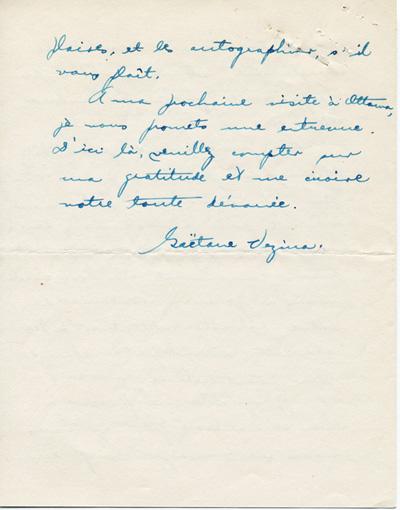 plaires, et les autographier, s'il
vous plaît.
À ma prochaine visite à Ottawa,
je vous promets une entrevue.
D'ici là, veuillez compter sur
ma gratitude et me croire
votre toute dévouée.
Gaëtane Vezina.